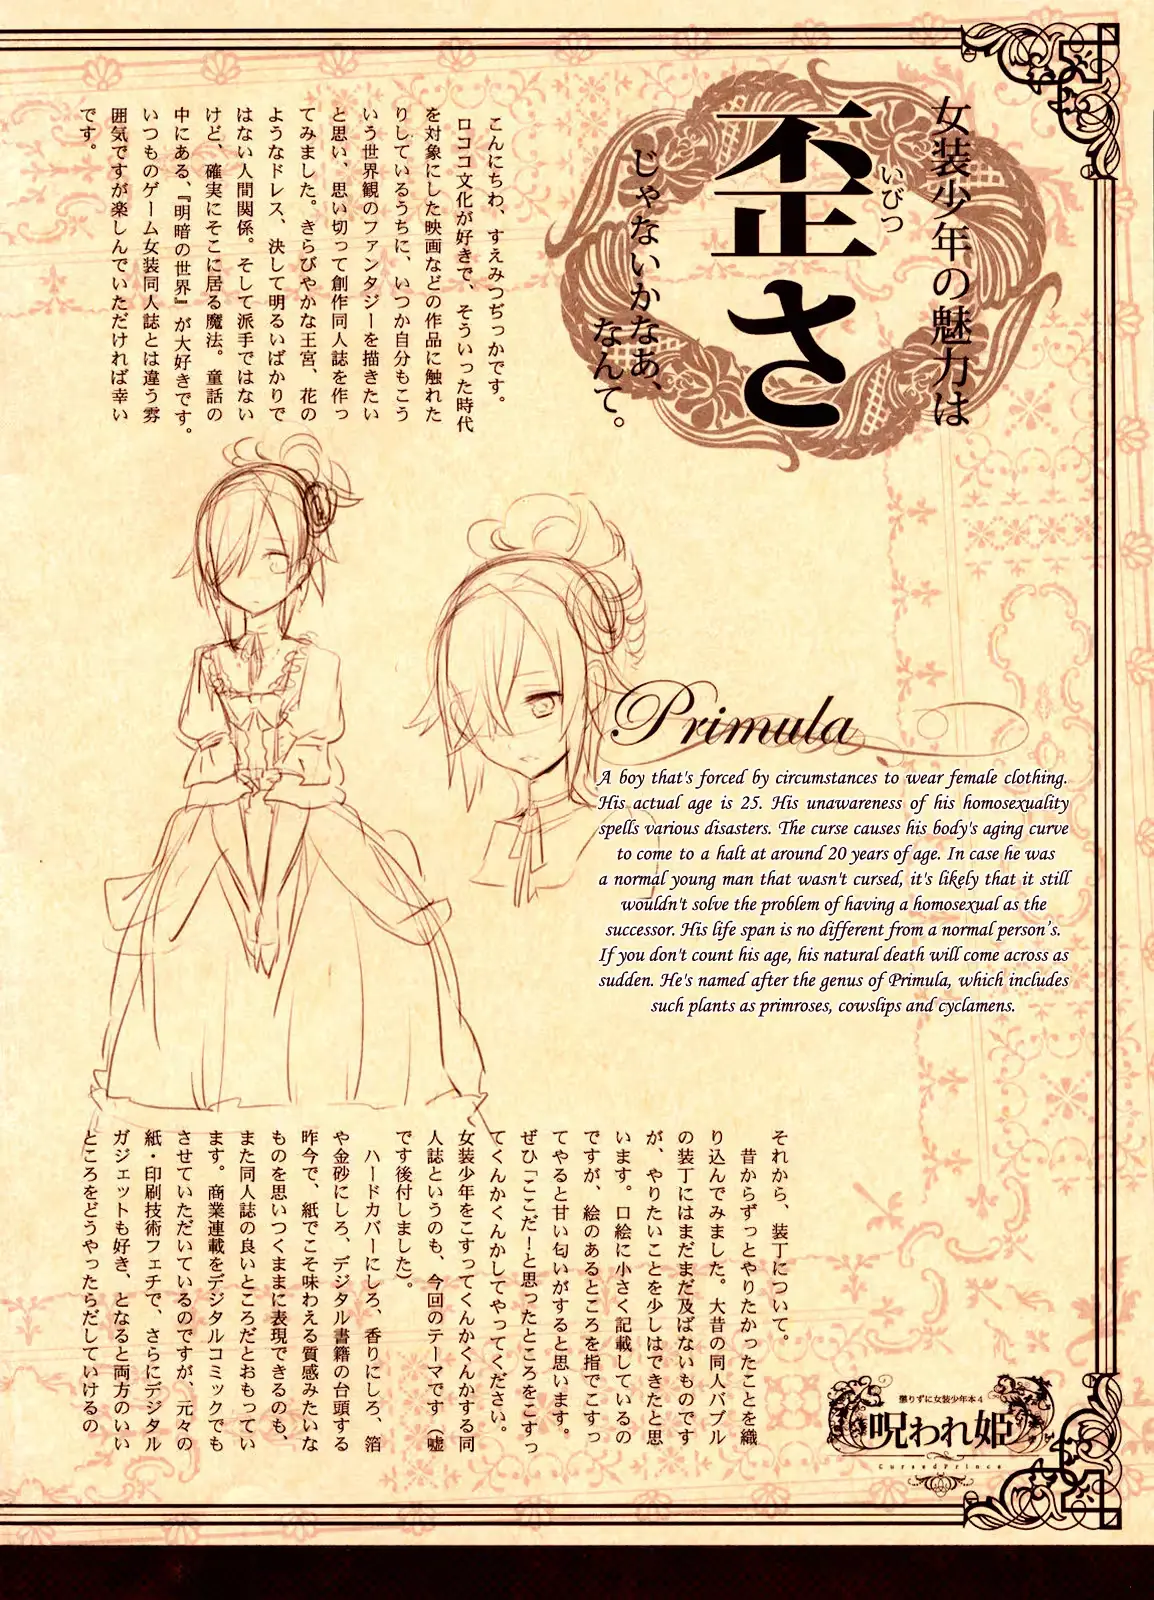 女装少年の魅力は
いびつ
歪さ
じゃないかなあ、
なんて。
こんにちわ、すえみつぢっかです。
ロココ文化が好きで、そういった時代
を対象にした映画などの作品に触れた
りしているうちに、いつか自分もこう
いう世界観のファンタジーを描きたい
と思い、思い切って創作同人誌を作っ
てみました。きらびやかな王宮、花の
ようなドレス、決して明るいばかりで
はない人間関係。そして派手ではない
けど、確実にそこに居る魔法。童話の
中にある、『明暗の世界』が大好きです。
いつものゲーム女装同人誌とは違う雰
囲気ですが楽しんでいただければ幸い
です。
Primula
A boy that's forced by circumstances to wear female clothing.
His actual age is 25. His unawareness of his homosexuality
spells various disasters. The curse causes his body's aging curve
to come to a halt at around 20 years of age. In case he was
a normal young man that wasn't cursed, it's likely that it still
wouldn't solve the problem of having a homosexual as the
successor. His life span is no different from a normal person's.
If you don't count his age, his natural death will come across as
sudden. He's named after the genus of Primula, which includes
such plants as primroses, cowslips and cyclamens.
それから、装丁について。
昔からずっとやりたかったことを織
り込んでみました。大昔の同人バブル
の装丁にはまだまだ及ばないものです
が、やりたいことを少しはできたと思
います。口絵に小さく記載しているの
ですが、絵のあるところを指でこすっ
てやると甘い匂いがすると思います。
ぜひ「ここだー」と思ったところをこすっ
てくんかくんかしてやってください。
女装少年をこすってくんかくんかする同
人誌というのも、今回のテーマです（嘘
です後付しました）。
ハードカバーにしろ、香りにしろ、箔
や金砂にしろ、デジタル書籍の台頭する
昨今で、紙でこそ味わえる質感みたいな
ものを思いつくままに表現できるのも、
また同人誌の良いところだとおもってい
ます。商業連載をデジタルコミックでも
させていただいているのですが、元々の
紙・印刷技術フェチで、さらにデジタル
ガジェットも好き、となると両方のいい
ところをどうやったらだしていけるの
懲りずに女装少年本4
呪われ姫
CursedPrince